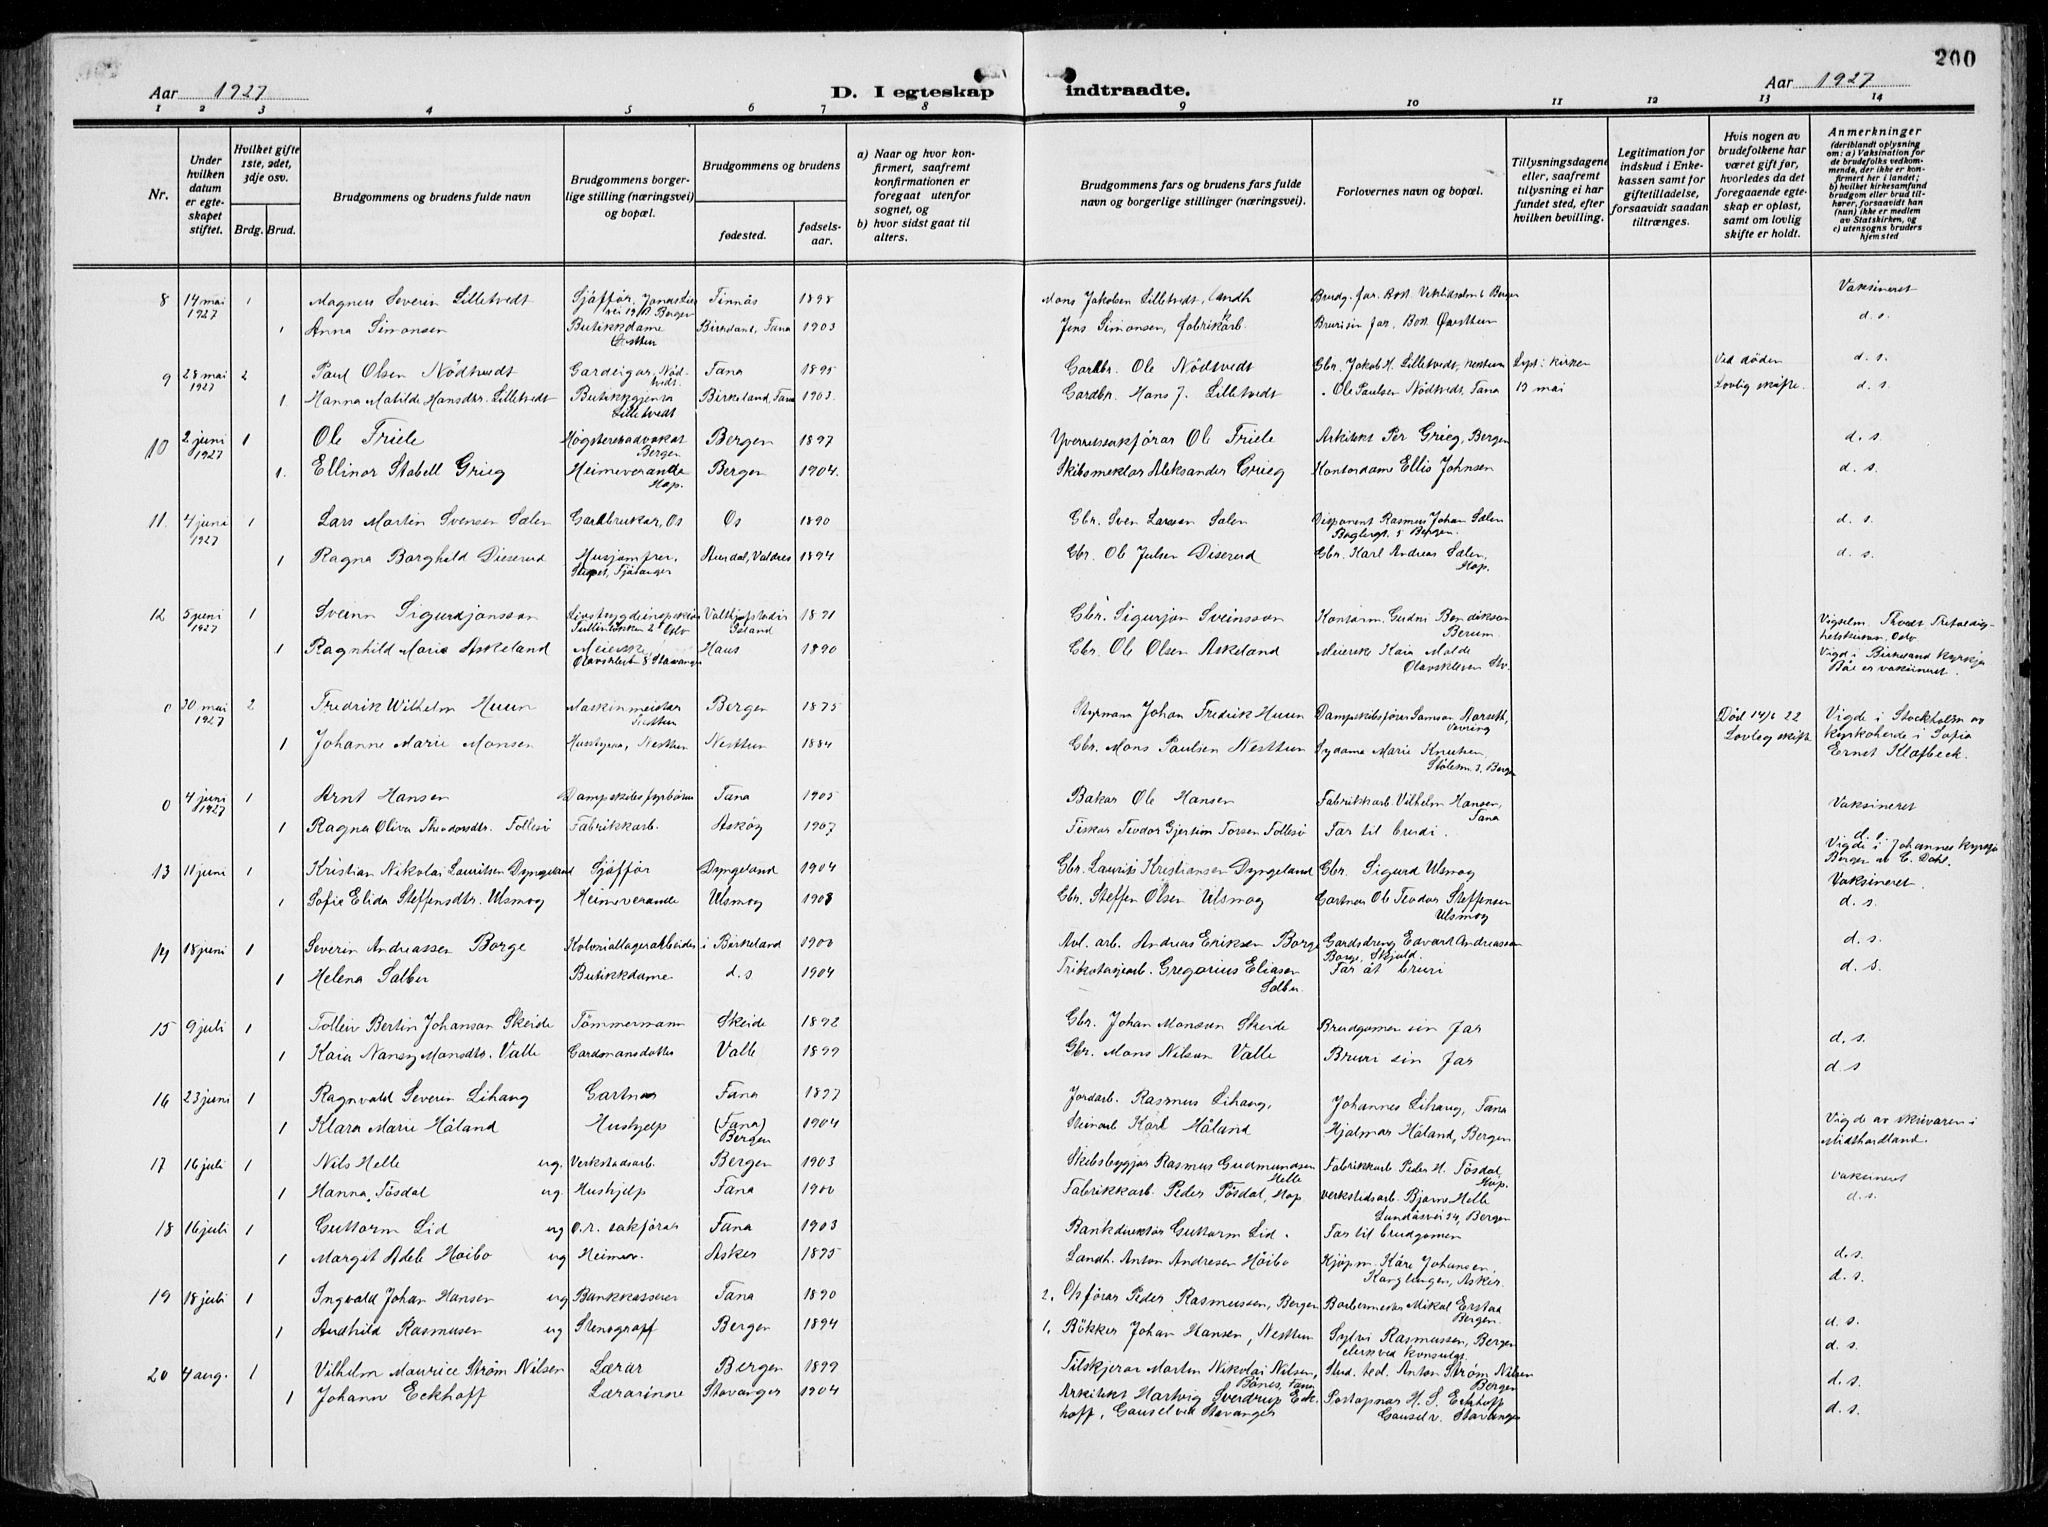 200
Aar 1927
D. I egteskap indtraadte.
Aar 1927
1 2 3 4 5 6 7 8 9 10 11 12 13 14
Nr.
Under hvilken datum er egteskapet stiftet.
Hvilket gifte 1ste, 2det, 3dje osv.
Brdg. Brud.
Brudgommens og brudens fulde navn
Brudgommens borgerlige stilling (næringsvei) og bopæl.
Brudgommens og brudens
fødested.
fødselsaar.
a) Naar og hvor konfirmert, saafremt konfirmationen er foregaat utenfor sognet, og
b) hvor sidst gaat til alters.
Brudgommens fars og brudens fars fulde navn og borgerlige stillinger (næringsvei).
Forlovernes navn og bopæl.
Tillysningsdagene eller, saafremt tillysning ei har fundet sted, efter hvilken bevilling.
Legitimation for indskud i Enkekassen samt for giftetilladelse, forsaavidt saadan tiltrænges.
Hvis nogen av brudefolkene har været gift før, hvorledes da det foregaaende egteskap er opløst, samt om lovlig skifte er holdt.
Anmerkninger (deriblandt oplysning om: a) Vaksination for de brudefolks vedkommende, der ikke er konfirmert her i landet; b) hvilket kirkesamfund brudgom eller brud tilhører, forsaavidt han (hun) ikke er medlem av Statskirken, og c) utensogns bruders hjemsted
8 14 mai 1927 1 Magnus Severin Lilletvedt Sjåfför, Bergen Tinnås 1898 Mons Jakobsen Lilletvedt, landh Brudg. far. Vaksineret
1 Anna Simonsen Butikkdame Birkeland, Fana 1903 Jens Simonsen, fabrikarb. Bruri sin far, d. s.
9 28 mai 1927 2 Paul Olsen Nödtvedt Gardeigar, Nödtvedt. Fana 1895 Gardbr. Ole Nödtvedt Gbr. Jakob H. Lilletvedt, Nesttun Lyst i kirken Ved döden d. s.
1 Hanna Matilde Hansdtr. Lilletvedt Butikkgjenta Lilletvedt Birkeland, Fana 1903. Gardbr. Hans J. Lilletvedt Ole Paulsen Nödtvedt, Fana 15 mai Lovlig skifte. d. s.
10 2 juni 1927 1 Ole Friele Högsterettsadvokat Bergen Bergen 1897 Yverrettssakförar Ole Friele Arkitekt Per Grieg, Bergen d. s.
1. Ellinor Stabell Grieg Heimeverande Hop. Bergen 1904. Skibsmeklar Aleksander Grieg Kontordame Ellis Johnsen d. s.
11. 4 juni 1927 1 Lars Martin Svensen Sælen Gardbrukar, Os Os 1890 Gbr. Sven Larssen Sælen Disponent Rasmus Johan Sælen Bergen. d. s.
1 Ragna Borghild Diserud Husjomfru, Fjösanger Aurdal, Valdres 1894 Gbr. Ole Julsen Diserud Gbr. Karl Andreas Sælen, Hop. d. s.
12 5 juni 1927 1 Sveinn Sigurdjonsson Oslo Island 1891 Gbr. Sigurjon Sveinsson Kontorm. Gudni Bendikson Berum. Oslo
1 Ragnhild Marie Askeland Meierske, Olavskleiv 8 Stavanger Haus 1890 Gbr. Ole Olsen Askeland Meierske Kaia Molde Olavskleven Stv. Vigd i Birkeland kyrkja Båe er vaksineret.
0 30 mai 1927 2 Fredrik Wilhelm Huun Maskinmeister Nesttun Bergen 1875 Styrmann Johan Fredrik Huun Dampskibsförar Samson Aarseth, Död 14/6 22 Vigde i Stockholm av
1 Johanne Marie Monsen Husstyra, Nesttun Nesttun 1884 Gbr. Mons Paulsen Nesttun Sydame Marie Knutsen, Bergen Lovleg skifte kyrkoherde i Sofia Ernst Klefbeck.
0 4 juni 1927 1 Arnt Hansen Dampskibsfyrböter Fana 1905 Bakar Ole Hansen Fabrikkarb Vilhelm Hansen, Fana Vaksineret
1 Ragna Oliva Theodorsdtr. Follesö Fabrikkarb. Asköy 1907 Fiskar Teodor Gjertin Torsen Follesö Far til brudi. d. s. Vigde i Johannes kyrkja Bergen av C. Dahl.
13 11 juni 1 Kristian Nikolai Lauritsen Dyngeland Sjåffør Dyngeland 1904 Gbr. Laurits Kristiansen Dyngeland Gbr. Sigurd Ulsmog Vaksineret.
1 Sofie Elida Steffensdtr. Ulsmog Heimeverande Ulsmog 1908 Gbr. Steffen Olsen Ulsmog Gartnar Ole Teodor Steffensen Ulsmog d. s.
14 18 juni 1 Severin Andreassen Borge Koloniallagerarbeider i Birkeland 1900 Avl. arb. Andreas Eriksen Borge Gardsdreng Edvart Andreassen Borge, Skjold. d. s.
1 Helena Salbu Butikkdame d. s 1904 Trikotasjearb. Gregorius Eliasen Salbu. Far åt bruri d. s.
15 9 juli 1 Tolleiv Bertin Johanson Skeide Tömmermann Skeide 1892 Gbr. Johan Monsen Skeide Brudgomen sin far d. s.
1 Kaia Nansy Monsdtr. Valle Gardmansdotter Valle 1899 Gbr. Mons Nilsen Valle Bruri sin far d. s
16 23 juni 1 Ragnvald Severin Lihaug Gartnar Fana 1897 Jordarb. Rasmus Lihaug, Johannes Lihaug, Fana
1 Klara Marie Håland Hushjelp (Fana) Bergen 1904 Steinarb Karl Håland Hjalmar Håland, Bergen Vigde av skrivaren i Midthordland.
17 16 juli 1 Nils Helle ug. Verkstadsarb. Bergen 1903 Skibsbyggjar Rasmus Gudmundsen Helle Fabrikkarb Peder H. Tösdal, Hop. Vaksineret
1 Hanna Tösdal ug. Hushjelp Fana 1900 Fabrikkarb. Peder Tösdal, Hop Verkstedsarb. Bjarne Helle Lundåsvei 24, Bergen d. s.
18 16 juli 1 Guttorm Lid ug o.r. sakförar Fana 1903 Bankdirektör Guttorm Lid. Far til brudgomen
1 Margit Adele Höibo ug Heimev. Asker 1895 Landh. Anton Andresen Höibo Kjöpm. Kåre Johansen. Asker. d. s. d. s.
19 18 juli 1 Ingvald Johan Hansen ug Bankkasserer Fana 1890 2. Peder Rasmussen, Bergen Barbermester Mikal Erstad Bergen. d. s.
1 Audhild Rasmusen ug Stenograff Bergen 1894 1. Bökker Johan Hansen, Nesttun Sylvi Rasmussen, Bergen d. s.
20 4 aug. 1 Vilhelm Maurice Strøm Nilsen Lærar Bergen 1899 Tilskjerar Martin Nikolai Nilsen, Bönes, Fana Stud. ted. Anton Strøm Nilsen Bergen d. s.
1 Johann Eckhoff Lærarinne Stavanger 1904 Arkitekt Hartvig Sverdrup Eckhoff, Gausel ved Stavanger Postopnar H. S. Eckhoff Gausel v. Stavanger d. s.